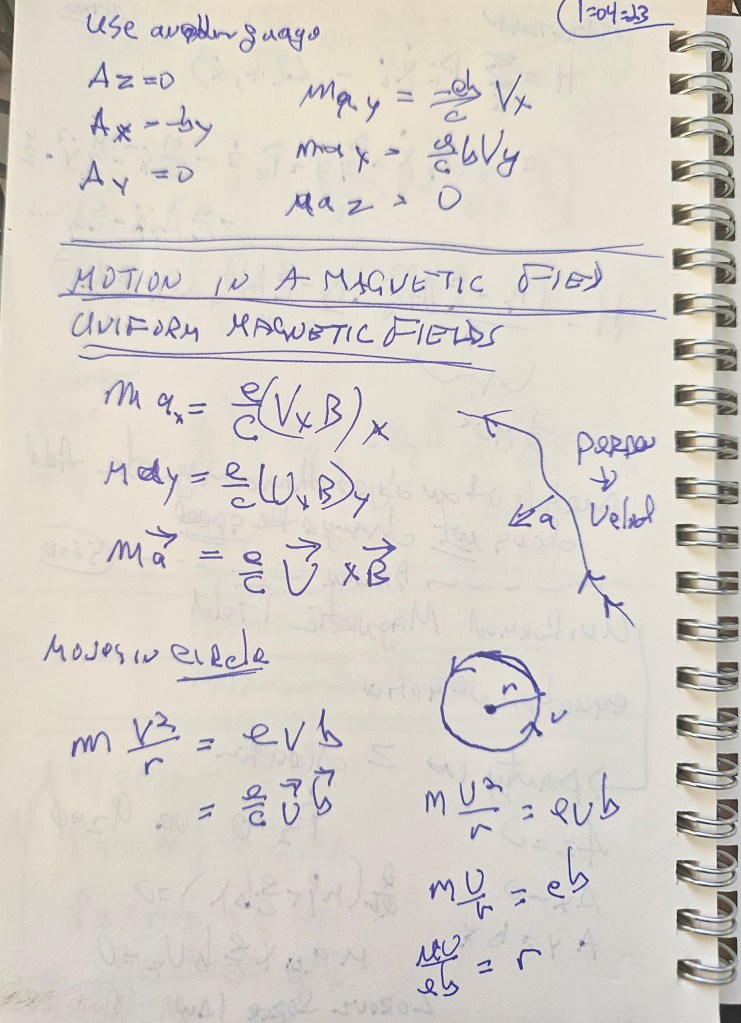 1=04=23
Use another guage
Az=0
Ax = -by
Ay = 0
m ay = -eb/c Vx
m ax = e/c b Vy
m az = 0
MOTION IN A MAGNETIC FIED
UNIFORM MAGNETIC FIELDS
m ax = e/c (V x B)x
m ay = e/c (V x B)y
m a⃗ = e/c V⃗ x B⃗
perpen
→
Veloc
a
Moves in circle
r
v
m V²/r = e v b
= e/c v⃗ b⃗
m v²/r = evb
m v/r = eb
mv/eb = r